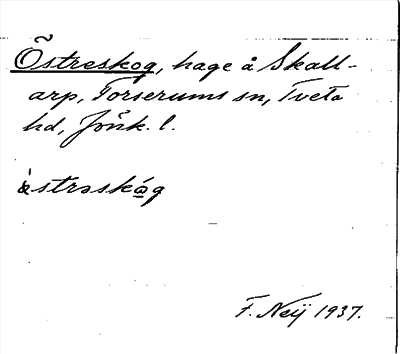 Östreskog, hage å Skall-
arp, Torserums sn, Tveta
hd, Jönk. l.
F. Neij 1937.